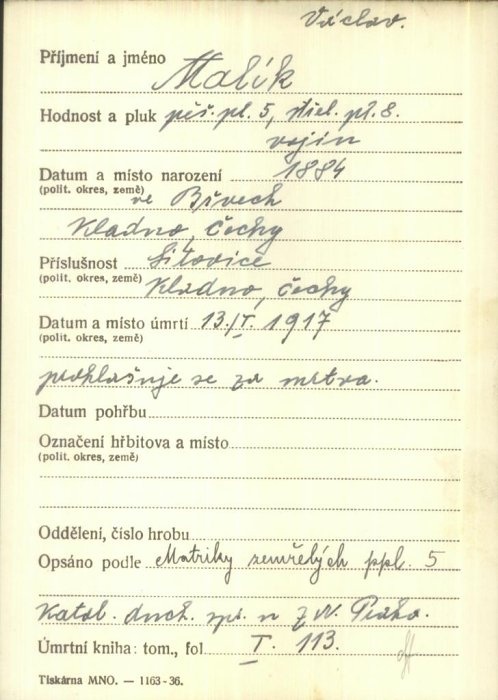 Václav.
Příjmení a jméno Malík
Hodnost a pluk pěš. pl. 5, střel. pl. 8.
vojín
Datum a místo narození 1884
(polit. okres, země) ve Břvech
Kladno, Čechy
Příslušnost Litovice
(polit. okres, země) Kladno, Čechy
Datum a místo úmrtí 13./I. 1917
(polit. okres, země)
prohlašuje se za mrtva.
Datum pohřbu
Označení hřbitova a místo
(polit. okres, země)
Oddělení, číslo hrobu
Opsáno podle Matriky zemřelých ppl. 5
Katol. duch. spr. n Z.V. Praha.
Úmrtní kniha: tom., fol I. 113.
Tiskárna MNO. — 1163-36.